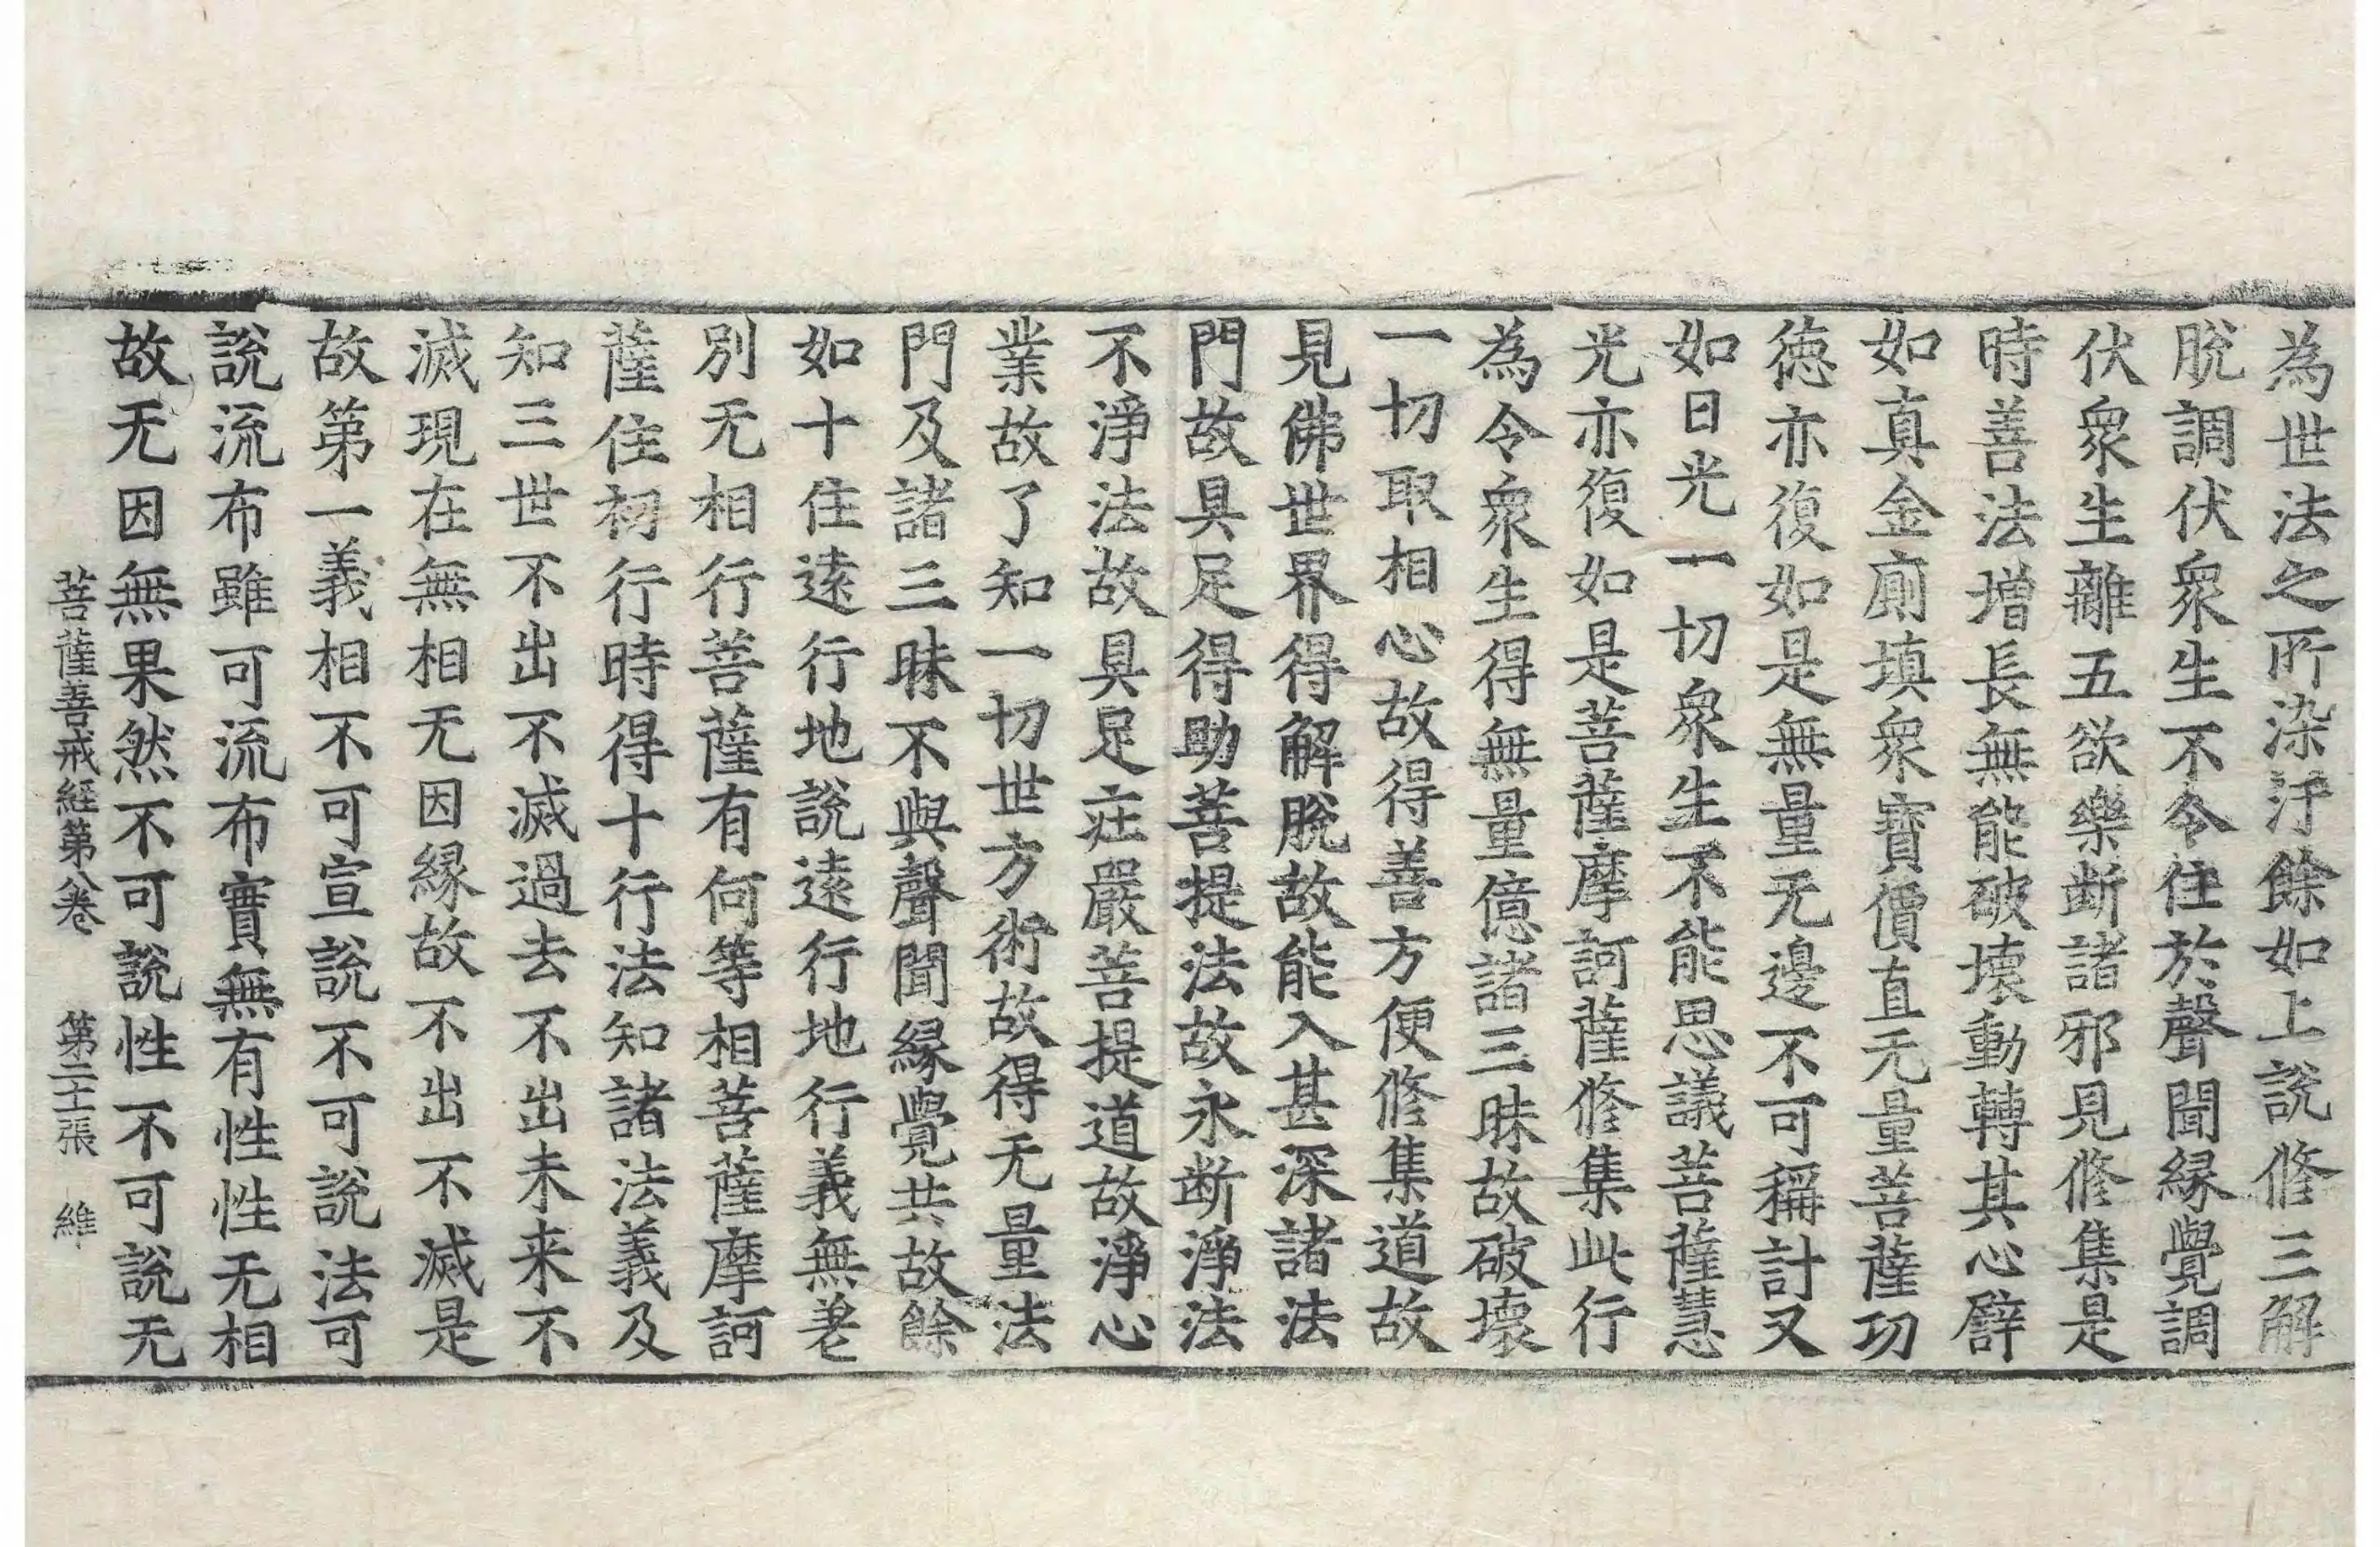 為世法之所染汙餘如上說修三解
脫調伏衆生不令住於聲聞緣覺調
伏衆生離五欲樂断諸邪見修集是
時善法增長無能破壞動轉其心譬
如真金廁填衆寶價直无量菩薩功
德亦復如是無量无邊不可稱計又
如日光一切衆生不能思議菩薩慧
光亦復如是菩薩摩訶薩修集此行
為令衆生得無量億諸三昧故破壞
一切取相心故得善方便修集道故
見佛世界得解脫故能入甚深諸法
門故具足得助菩提法故永断淨法
不淨法故具足庄嚴菩提道故淨心
業故了知一切世方術故得无量法
門及諸三昧不與聲聞緣覺共故餘
如十住遠行地說遠行地行義無差
別无相行菩薩有何等相菩薩摩訶
薩住初行時得十行法知諸法義及
知三世不出不滅過去不出未来不
滅現在無相无因緣故不出不滅是
故第一義相不可宣說不可說法可
說流布雖可流布實無有性性无相
故无因無果然不可說性不可說无
菩薩善戒經第八卷 第二十張 維